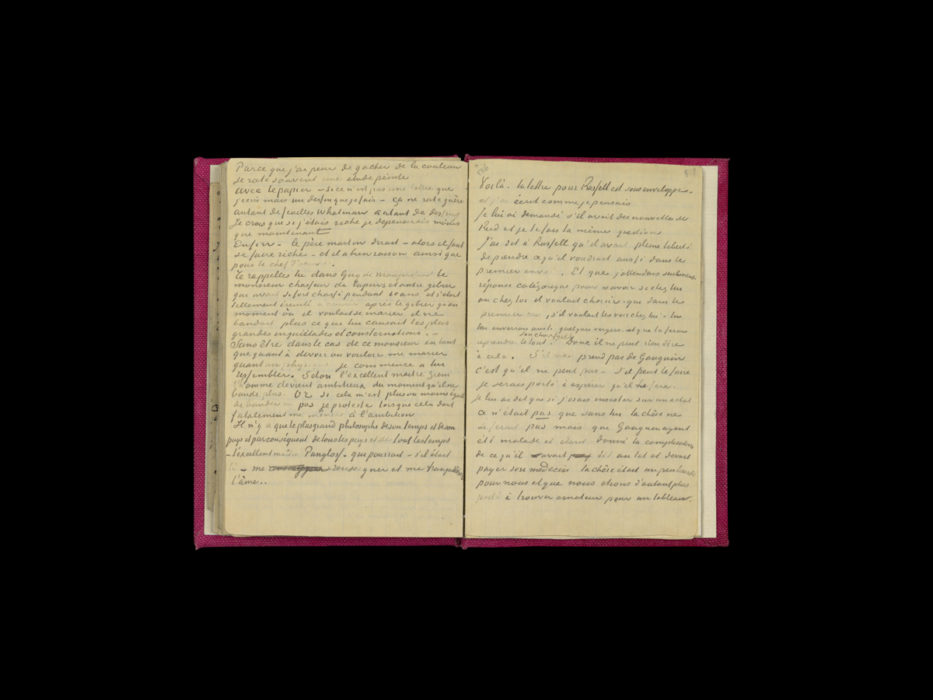 Parce que j'ai peur de gacher de la couleur
je rate souvent une étude peinte
avec le papier – si ce n'est pas une lettre que
j'ecris mais un dessin que je fais – ça ne rate guère
autant de feuilles Whatman autant de dessins
Je crois que si j'étais riche je depenserais moins
que maintenant
Enfin – le père martin dirait – alors il faut
se faire riche – et il a bien raison ainsi que
pour le chef
Te rappelles tu dans Guy de Maupassant le
monsieur chasseur de lapins et autre gibier
que avait si fort chassé pendant 10 ans et s'était
tellement à courir après le gibier qu'au
moment où il voulait se marier il ne
bandait plus ce que lui causait les plus
grandes inquiétudes et consternations. –
Sans être dans le cas de ce monsieur en tant
que quant à devoir ou vouloir me marier
quant au physique je commence a lui
ressembler. Selon l'excellent maitre Ziem
l'homme devient ambitieux du moment qu'il ne
bande plus. Or si cela m'est plus ou moins égal
de bander ou pas je proteste lorsque cela doit
fatalement me à l'ambition
Il n'y a que le plus grand philosophe de son temps et de son
pays et par conséquent de tous les pays et de tout les temps
– l'excellent maitre Pangloss – qui pourrait – s'il était
là – me renseigner et me tranquilliser
l'âme..
Voilà – la lettre pour Russell est sous enveloppe.
et j'ai écrit comme je pensais
Je lui ai demandé s'il avait des nouvelles de
Reid et je te fais la même question.
J'ai dit à Russell qu'il avait pleine liberté
de prendre ce qu'il voudrait aussi dans le
premier envoi. Et que j'attendais seulement
réponse catégorique pour savoir si chez lui
ou chez toi il voulait choisir. que dans le
premier cas, s'il voulait les voir chez lui – tu
lui enverrais aussi quelques vergers et que tu ferais
reprendre le tout son choix fixé. Donc il ne peut rien dire
à cela. S'il ne prend pas de Gauguin
c'est qu'il ne peut pas. S'il peut le faire
je serais porté à espérer qu'il le fera
je lui ai dit que si j'osais insister sur un achat
ce n'était pas que sans lui la chose ne
se ferait pas mais que Gauguin ayant
été malade et étant donné la complication
de ce qu'il avait été au lit et devait
payer son médecin la chose était un peu lourde
pour nous et que nous étions d'autant plus
porté à trouver amateur pour un tableau.